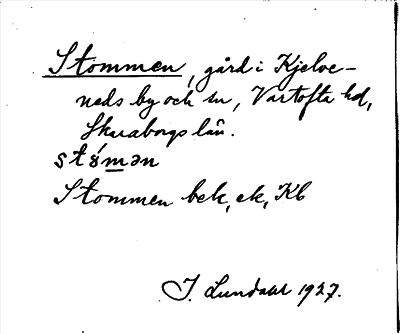 Stommen, gård i Kjelve-
neds by och sn, Vartofta hd,
Skaraborgs län.
stɤ́mən
Stommen bek, ek, Kb
I. Lundahl 1927.